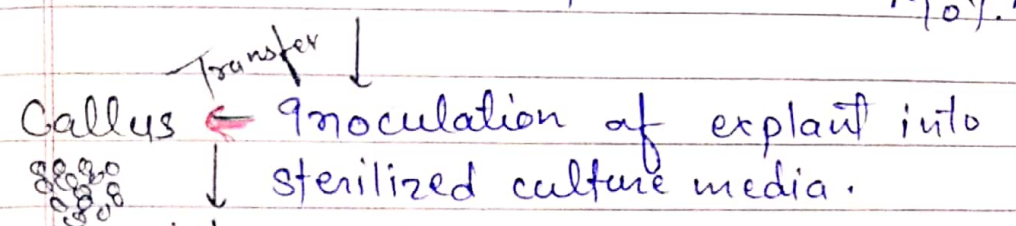 70%.
Transfer ↓
Callus ← Inoculation of explant into
↓ sterilized culture media.